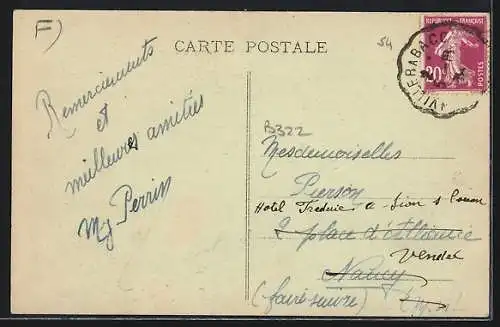 F)
CARTE POSTALE
54
REPUBLIQUE FRANÇAISE
20
POSTES
Remerciements
et
meilleures amitiés
My Perrin
B322
Mesdemoiselles
Pierson
Hotel a Sion s
2 place d'Alliance
Nancy
(faire suivre)